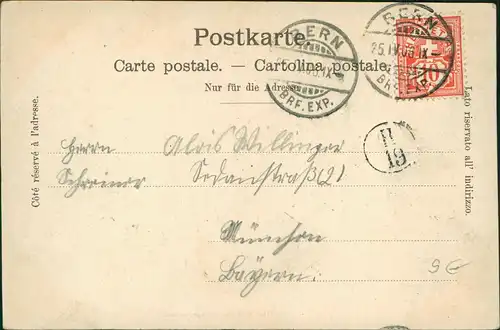 Postkarte.
Carte postale. — Cartolina postale.
Nur für die Adresse.
BERN
BRF. EXP.
BERN
25.IV.05.IX-
BRF. EXP.
10
Côté réservé à l'adresse.
Lato riservato all' indirizzo.
19
Herrn Alois Willinger
Schreiner Sedanstraß(2)
München
Bayern.
9€